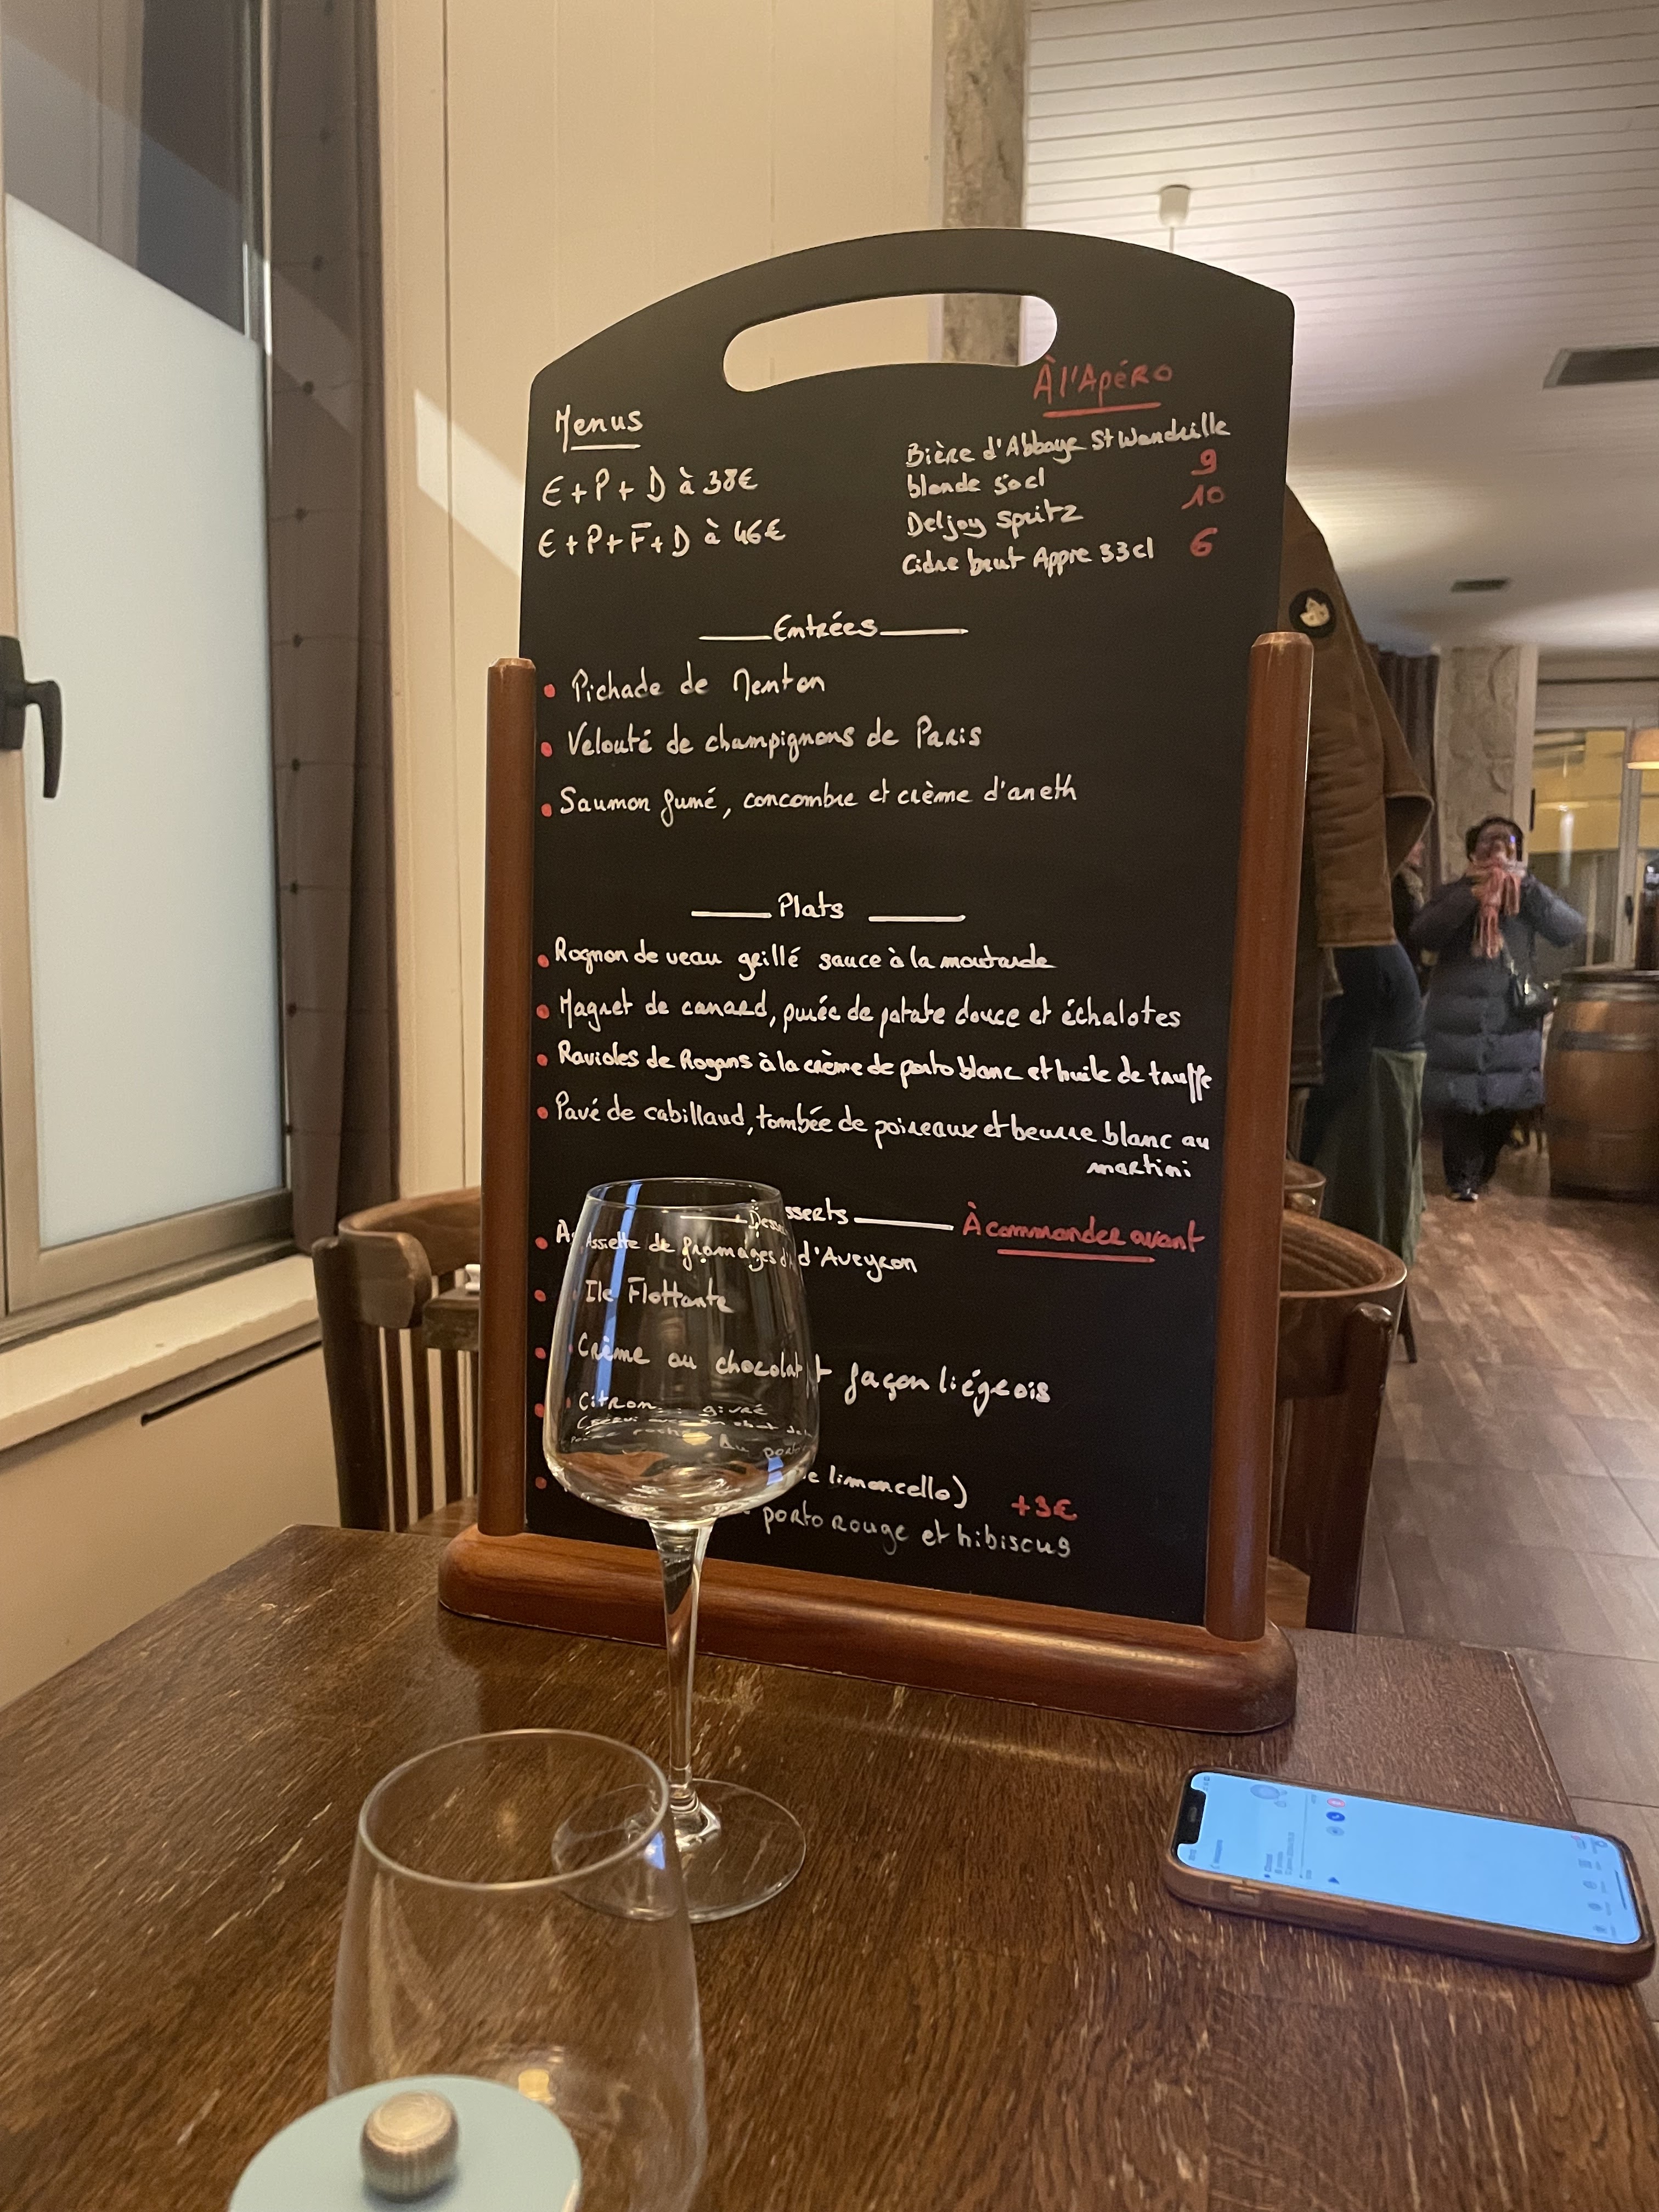 Menus
E + P + D à 38€
E + P + F + D à 46€
À l'Apéro
Bière d'Abbaye St Wandrille
blonde 50cl 9
Deljoy Spritz 10
Cidre brut Appre 33cl 6
Entrées
Pichade de Menton
Velouté de champignons de Paris
Saumon fumé, concombre et crème d'aneth
Plats
Rognon de veau grillé sauce à la moutarde
Magret de canard, purée de patate douce et échalotes
Ravioles de Royans à la crème de porto blanc et huile de truffe
Pavé de cabillaud, tombée de poireaux et beurre blanc au
martini
Desserts À commander avant
Assiette de fromages d'Aveyron
Ile Flottante
Crème au chocolat façon liégeois
Citron givré
limoncello) +3€
porto rouge et hibiscus